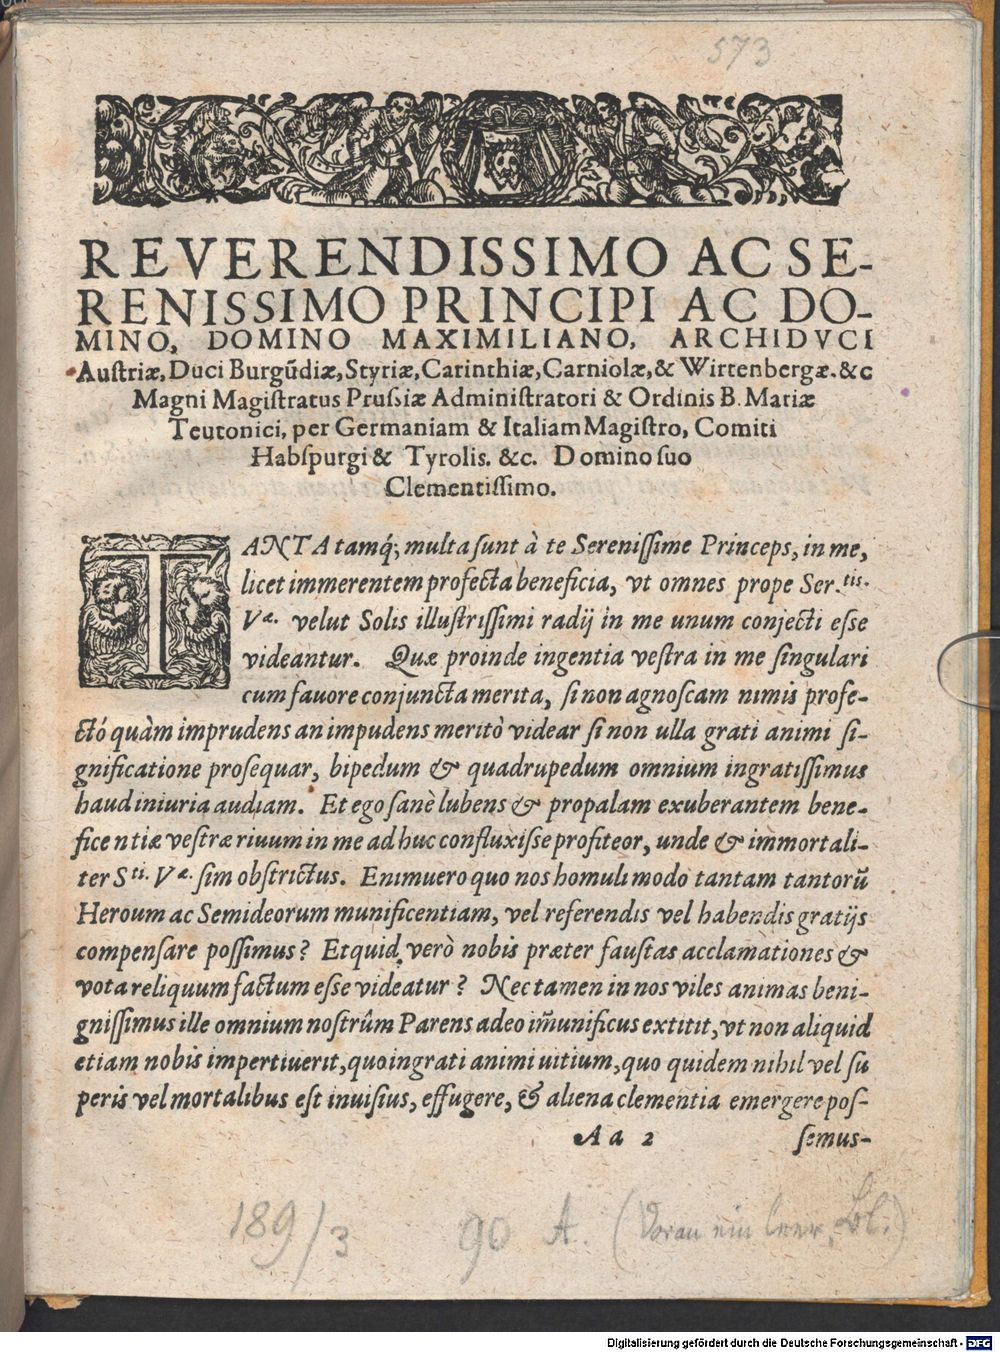 573
REVERENDISSIMO AC SE-
RENISSIMO PRINCIPI AC DO-
MINO, DOMINO MAXIMILIANO, ARCHIDVCI
Auſtriæ, Duci Burgũdiæ, Styriæ, Carinthiæ, Carniolæ, & Wirtenbergæ. &c
Magni Magiſtratus Prusſiæ Adminiſtratori & Ordinis B. Mariæ
Teutonici, per Germaniam & Italiam Magiſtro, Comiti
Habſpurgi & Tyrolis. &c. Domino ſuo
Clementiſſimo.
TANTA tamq́; multa ſunt à te Sereniſſime Princeps, in me,
licet immerentem profecta beneficia, vt omnes prope Ser.tis.
Væ. velut Solis illuſtriſſimi radij in me unum conjecti eſse
videantur. Quæ proinde ingentia veſtra in me ſingulari
cum fauore conjuncta merita, ſi non agnoſcam nimis profe-
ctó quàm imprudens an impudens meritò videar ſi non ulla grati animi ſi-
gnificatione proſequar, bipedum & quadrupedum omnium ingratiſſimus
haud iniuria audiam. Et ego ſanè lubens & propalam exuberantem bene-
ficentiæ veſtræ riuum in me ad huc confluxiſse profiteor, unde & immortali-
ter Sti. Væ. ſim obſtrictus. Enimuero quo nos homuli modo tantam tantorũ
Heroum ac Semideorum munificentiam, vel referendis vel habendis gratijs
compenſare poſſimus? Et quid verò nobis præter fauſtas acclamationes &
vota reliquum factum eſse videatur? Nec tamen in nos viles animas beni-
gniſſimus ille omnium noſtrûm Parens adeo im̃unificus extitit, vt non aliquid
etiam nobis impertiuerit, quo ingrati animi uitium, quo quidem nihil vel ſu
peris vel mortalibus eſt inuiſius, effugere, & aliena clementia emergere poſ-
Aa 2 ſemus-
189/3 90 A. (Voran ein leer. Bl.)
Digitalisierung gefördert durch die Deutsche Forschungsgemeinschaft - DFG